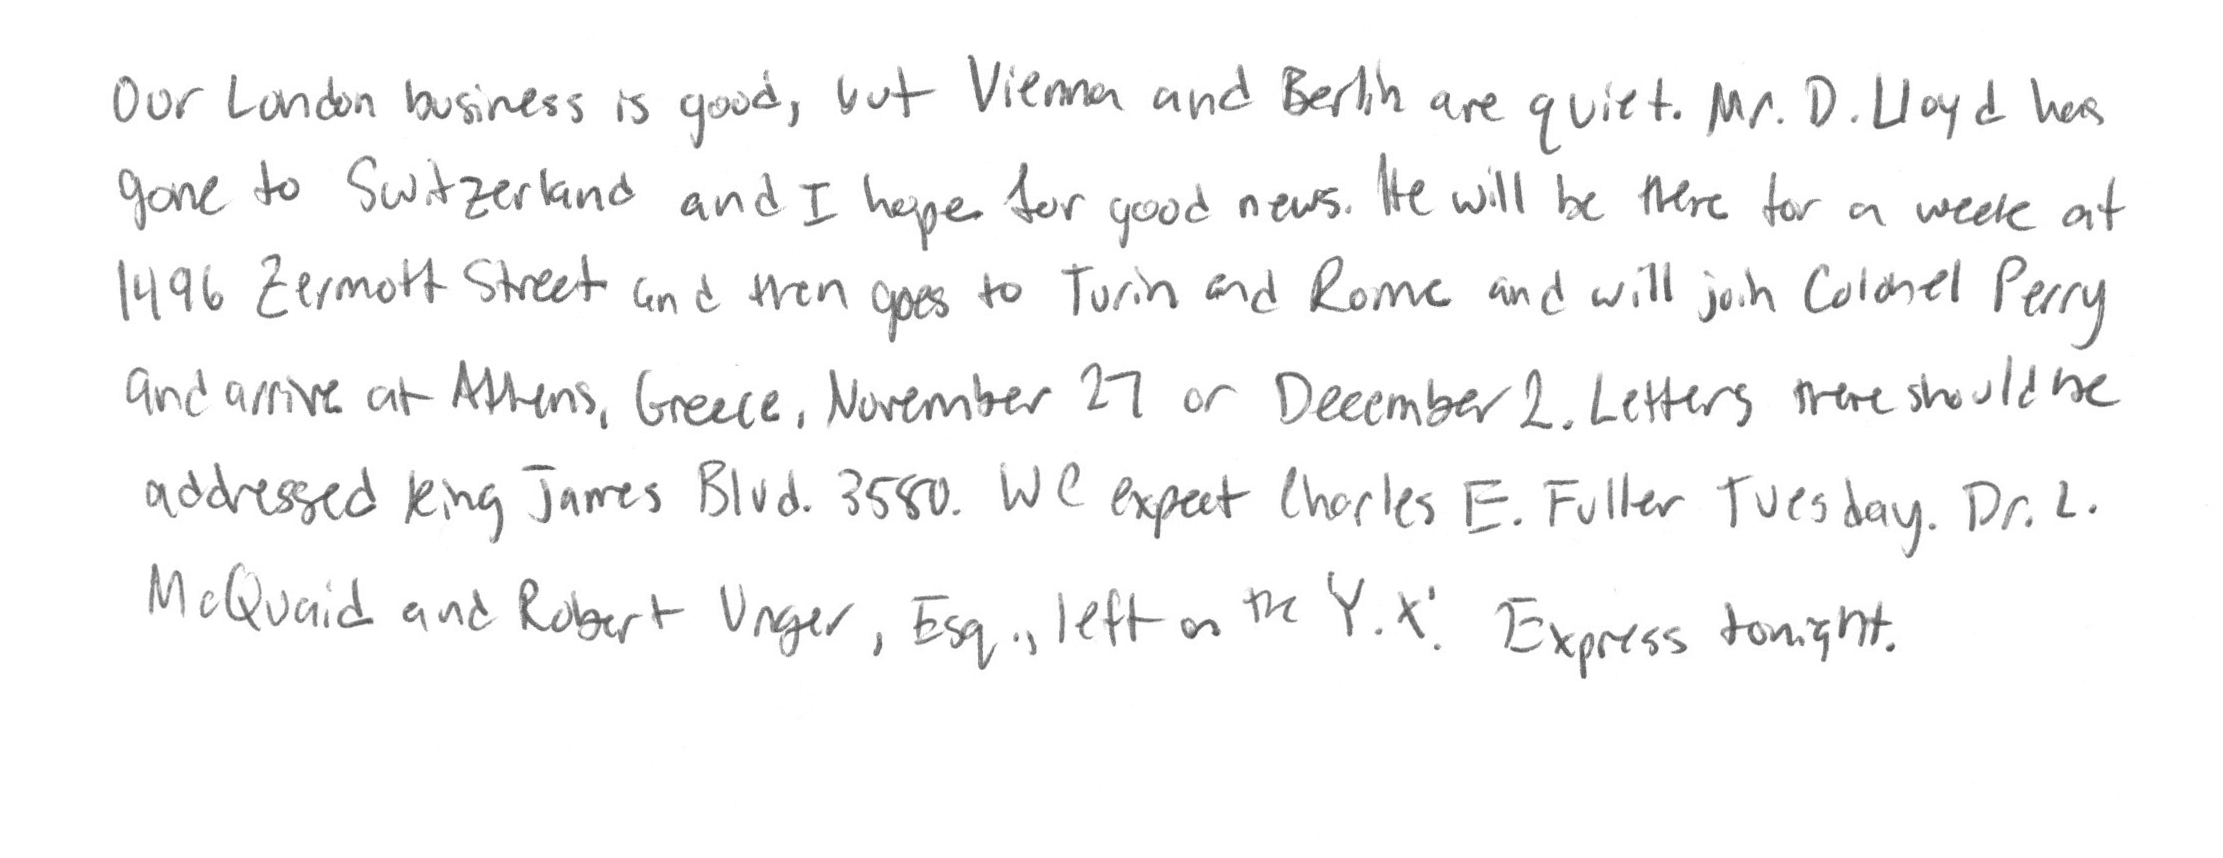 Our London business is good, but Vienna and Berlin are quiet. Mr. D. Lloyd has
gone to Switzerland and I hope for good news. He will be there for a week at
1496 Zermott Street and then goes to Turin and Rome and will join Colonel Perry
and arrive at Athens, Greece, November 27 or December 2. Letters there should be
addressed King James Blvd. 3580. We expect Charles E. Fuller Tuesday. Dr. L.
McQuaid and Robert Unger, Esq., left on the Y.X. Express tonight.